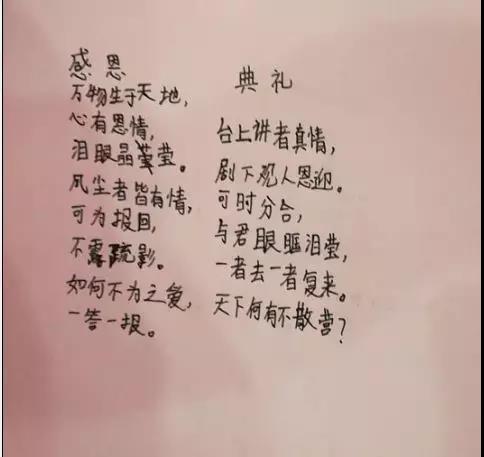 感恩
万物生于天地，
心有恩情，
泪眼晶莹。
风尘者皆有情，
可为报回，
不露疏影。
如何不为之爱，
一答一报。
典礼
台上讲者真情，
剧下观人恩迎。
可时分合，
与君眼眶泪莹，
一者去一者复来。
天下何有不散营？